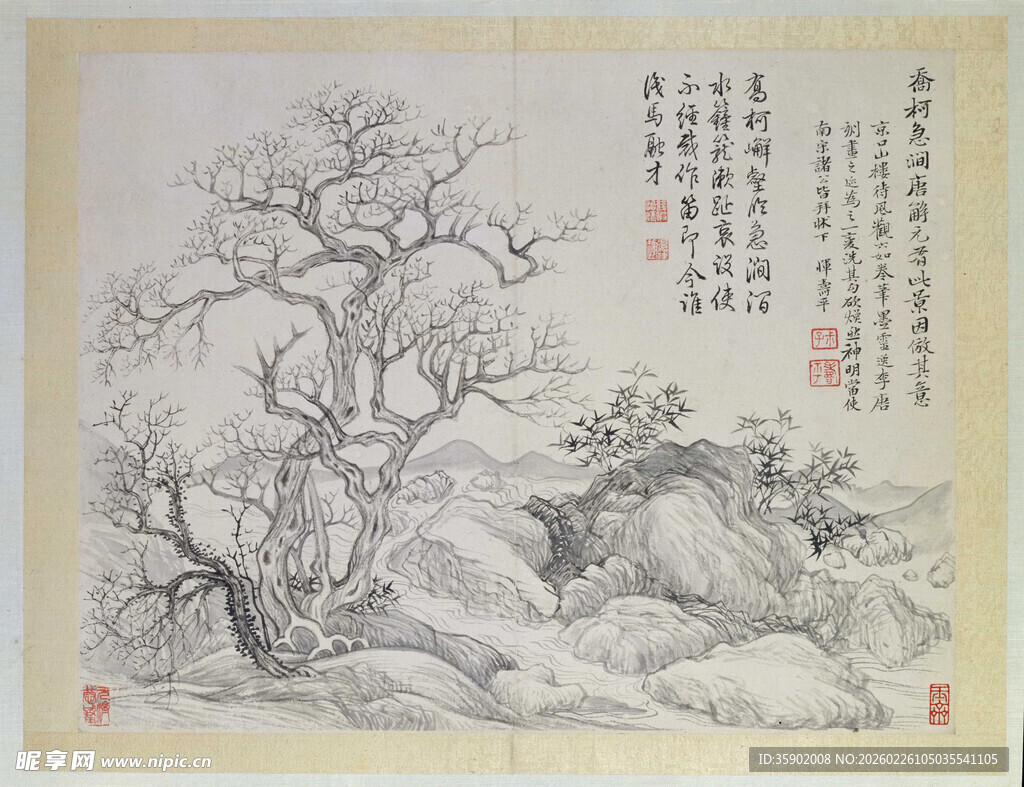 喬柯急澗唐解元有此景因倣其意
京口山樓待風觀六如卷筆墨靈逸李唐
刻畫之迹為之一變洗其勾斫煥然神明當使
南宋諸公皆拜牀下 惲壽平
高柯嶰壑臨急澗
水籦籠漱趾哀設使
不經裁作笛即今誰
識馬融才
昵享网 www.nipic.cn
ID:35902008 NO:20260226105035541105